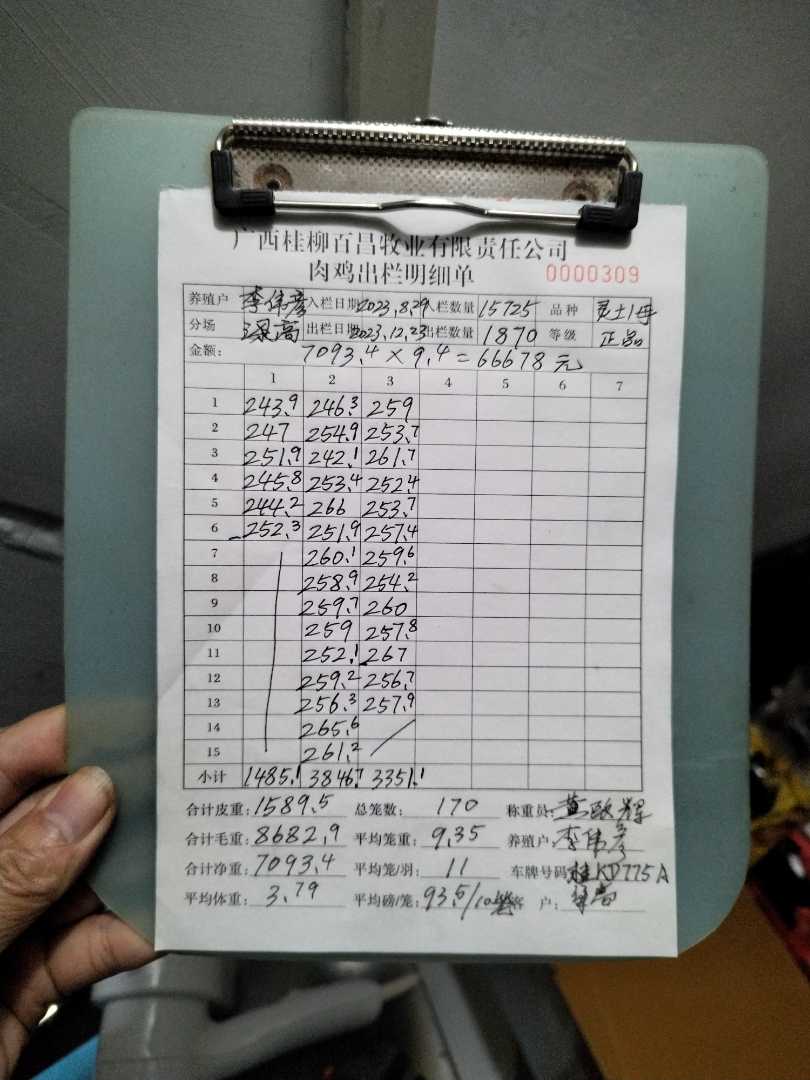 广西桂柳百昌牧业有限责任公司
肉鸡出栏明细单 0000309
养殖户 李伟彦 入栏日期 2023.8.29 入栏数量 15725 品种 灵土1母
分场 梁高 出栏日期 2023.12.23 出栏数量 1870 等级 正品
金额: 7093.4 × 9.4 = 66678 元
1 2 3 4 5 6 7
1 243.9 246.3 259
2 247 254.9 253.7
3 251.9 242.1 261.7
4 245.8 253.4 252.4
5 244.2 266 253.7
6 252.3 251.9 257.4
7 260.1 259.6
8 258.9 254.2
9 259.7 260
10 259 257.8
11 252.1 267
12 259.2 256.7
13 256.3 257.9
14 265.6
15 261.2
小计 1485.1 3846.7 3351.1
合计皮重: 1589.5 总笼数: 170 称重员:
合计毛重: 8682.9 平均笼重: 9.35 养殖户: 李伟彦
合计净重: 7093.4 平均笼/羽: 11 车牌号码: 桂KD775A
平均体重: 3.79 平均磅/笼: 93.5/10 户: